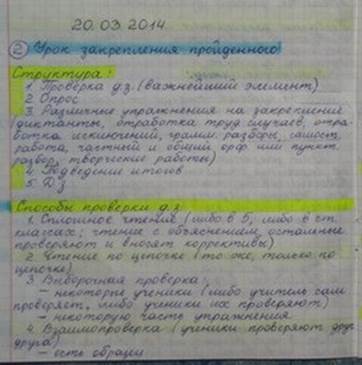 20.03.2014
2 Урок закрепления пройденного
Структура:
1. Проверка д.з. (важнейший элемент)
2. Опрос
3. Различные упражнения на закрепление
(диктанты, отработка труд. случаев, отра-
ботка исключений, грамм. разборы, самост.
работа, частный и общий орф. или пункт.
разбор, творческие работы)
4. Подведение итогов
5. Д.З.
Способы проверки д.з.
1. Сплошное чтение (либо в 5, либо в ст.
классах; чтение с объяснением, остальные
проверяют и вносят коррективы)
2. Чтение по цепочке (то же, только по
цепочке)
3. Выборочная проверка:
– некоторые ученики (либо учитель сам
проверяет, либо ученики их проверяют)
– некоторую часть упражнения
4. Взаимопроверка (ученики проверяют друг
друга)
– есть образец